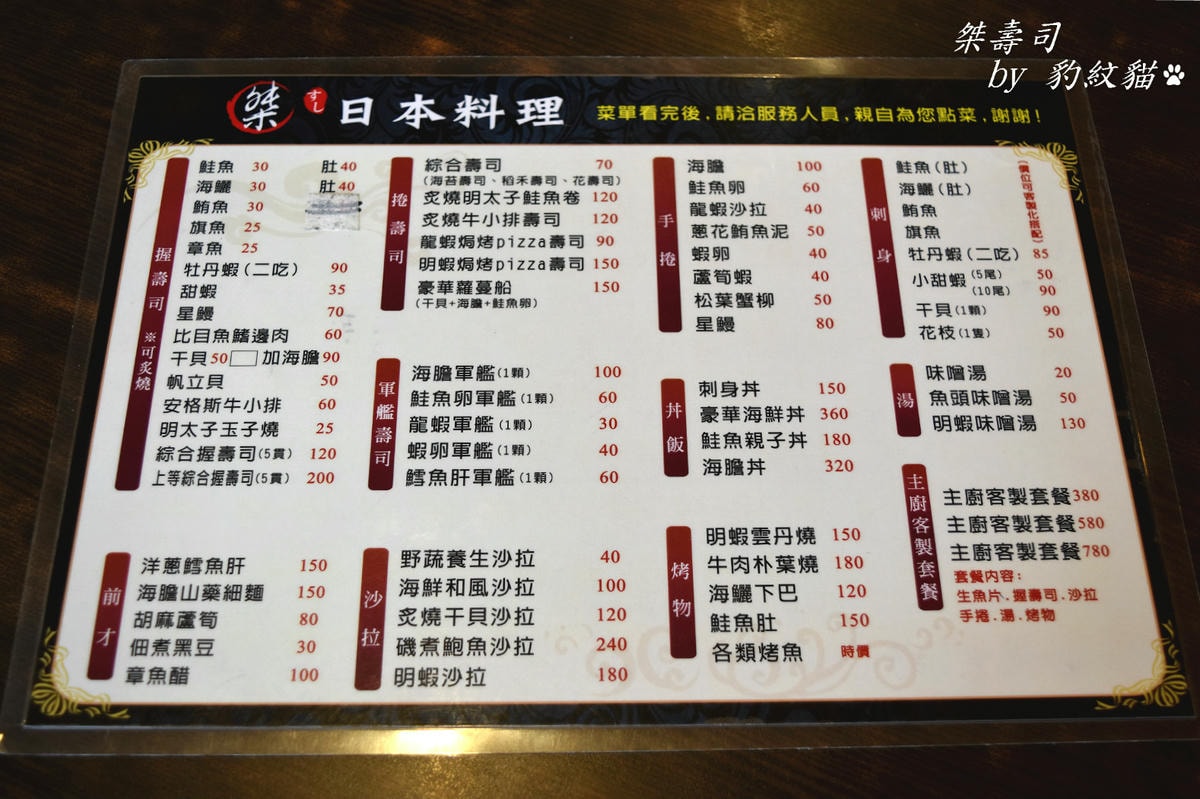 桀壽司
by 豹紋貓
桀 すし 日本料理 菜單看完後,請洽服務人員,親自為您點菜,謝謝!
握壽司 ※可炙燒
鮭魚 30 肚40
海鱺 30 肚40
鮪魚 30
旗魚 25
章魚 25
牡丹蝦(二吃) 90
甜蝦 35
星鰻 70
比目魚鰭邊肉 60
干貝50 加海膽90
帆立貝 50
安格斯牛小排 60
明太子玉子燒 25
綜合握壽司(5貫) 120
上等綜合握壽司(5貫) 200
捲壽司
綜合壽司 70
(海苔壽司、稻禾壽司、花壽司)
炙燒明太子鮭魚卷 120
炙燒牛小排壽司 120
龍蝦焗烤pizza壽司 90
明蝦焗烤pizza壽司 150
豪華蘿蔓船 150
(干貝+海膽+鮭魚卵)
手捲
海膽 100
鮭魚卵 60
龍蝦沙拉 40
蔥花鮪魚泥 50
蝦卵 40
蘆筍蝦 40
松葉蟹柳 50
星鰻 80
刺身
(價位可客製化搭配)
鮭魚(肚)
海鱺(肚)
鮪魚
旗魚
牡丹蝦(二吃) 85
小甜蝦 (5尾) 50
(10尾) 90
干貝(1顆) 90
花枝(1隻) 50
軍艦壽司
海膽軍艦(1顆) 100
鮭魚卵軍艦(1顆) 60
龍蝦軍艦(1顆) 30
蝦卵軍艦(1顆) 40
鱈魚肝軍艦(1顆) 60
丼飯
刺身丼 150
豪華海鮮丼 360
鮭魚親子丼 180
海膽丼 320
湯
味噌湯 20
魚頭味噌湯 50
明蝦味噌湯 130
主廚客製套餐
主廚客製套餐380
主廚客製套餐580
主廚客製套餐780
套餐內容:
生魚片.握壽司.沙拉
手捲.湯.烤物
前才
洋蔥鱈魚肝 150
海膽山藥細麵 150
胡麻蘆筍 80
佃煮黑豆 30
章魚醋 100
沙拉
野蔬養生沙拉 40
海鮮和風沙拉 100
炙燒干貝沙拉 120
磯煮鮑魚沙拉 240
明蝦沙拉 180
烤物
明蝦雲丹燒 150
牛肉朴葉燒 180
海鱺下巴 120
鮭魚肚 150
各類烤魚 時價